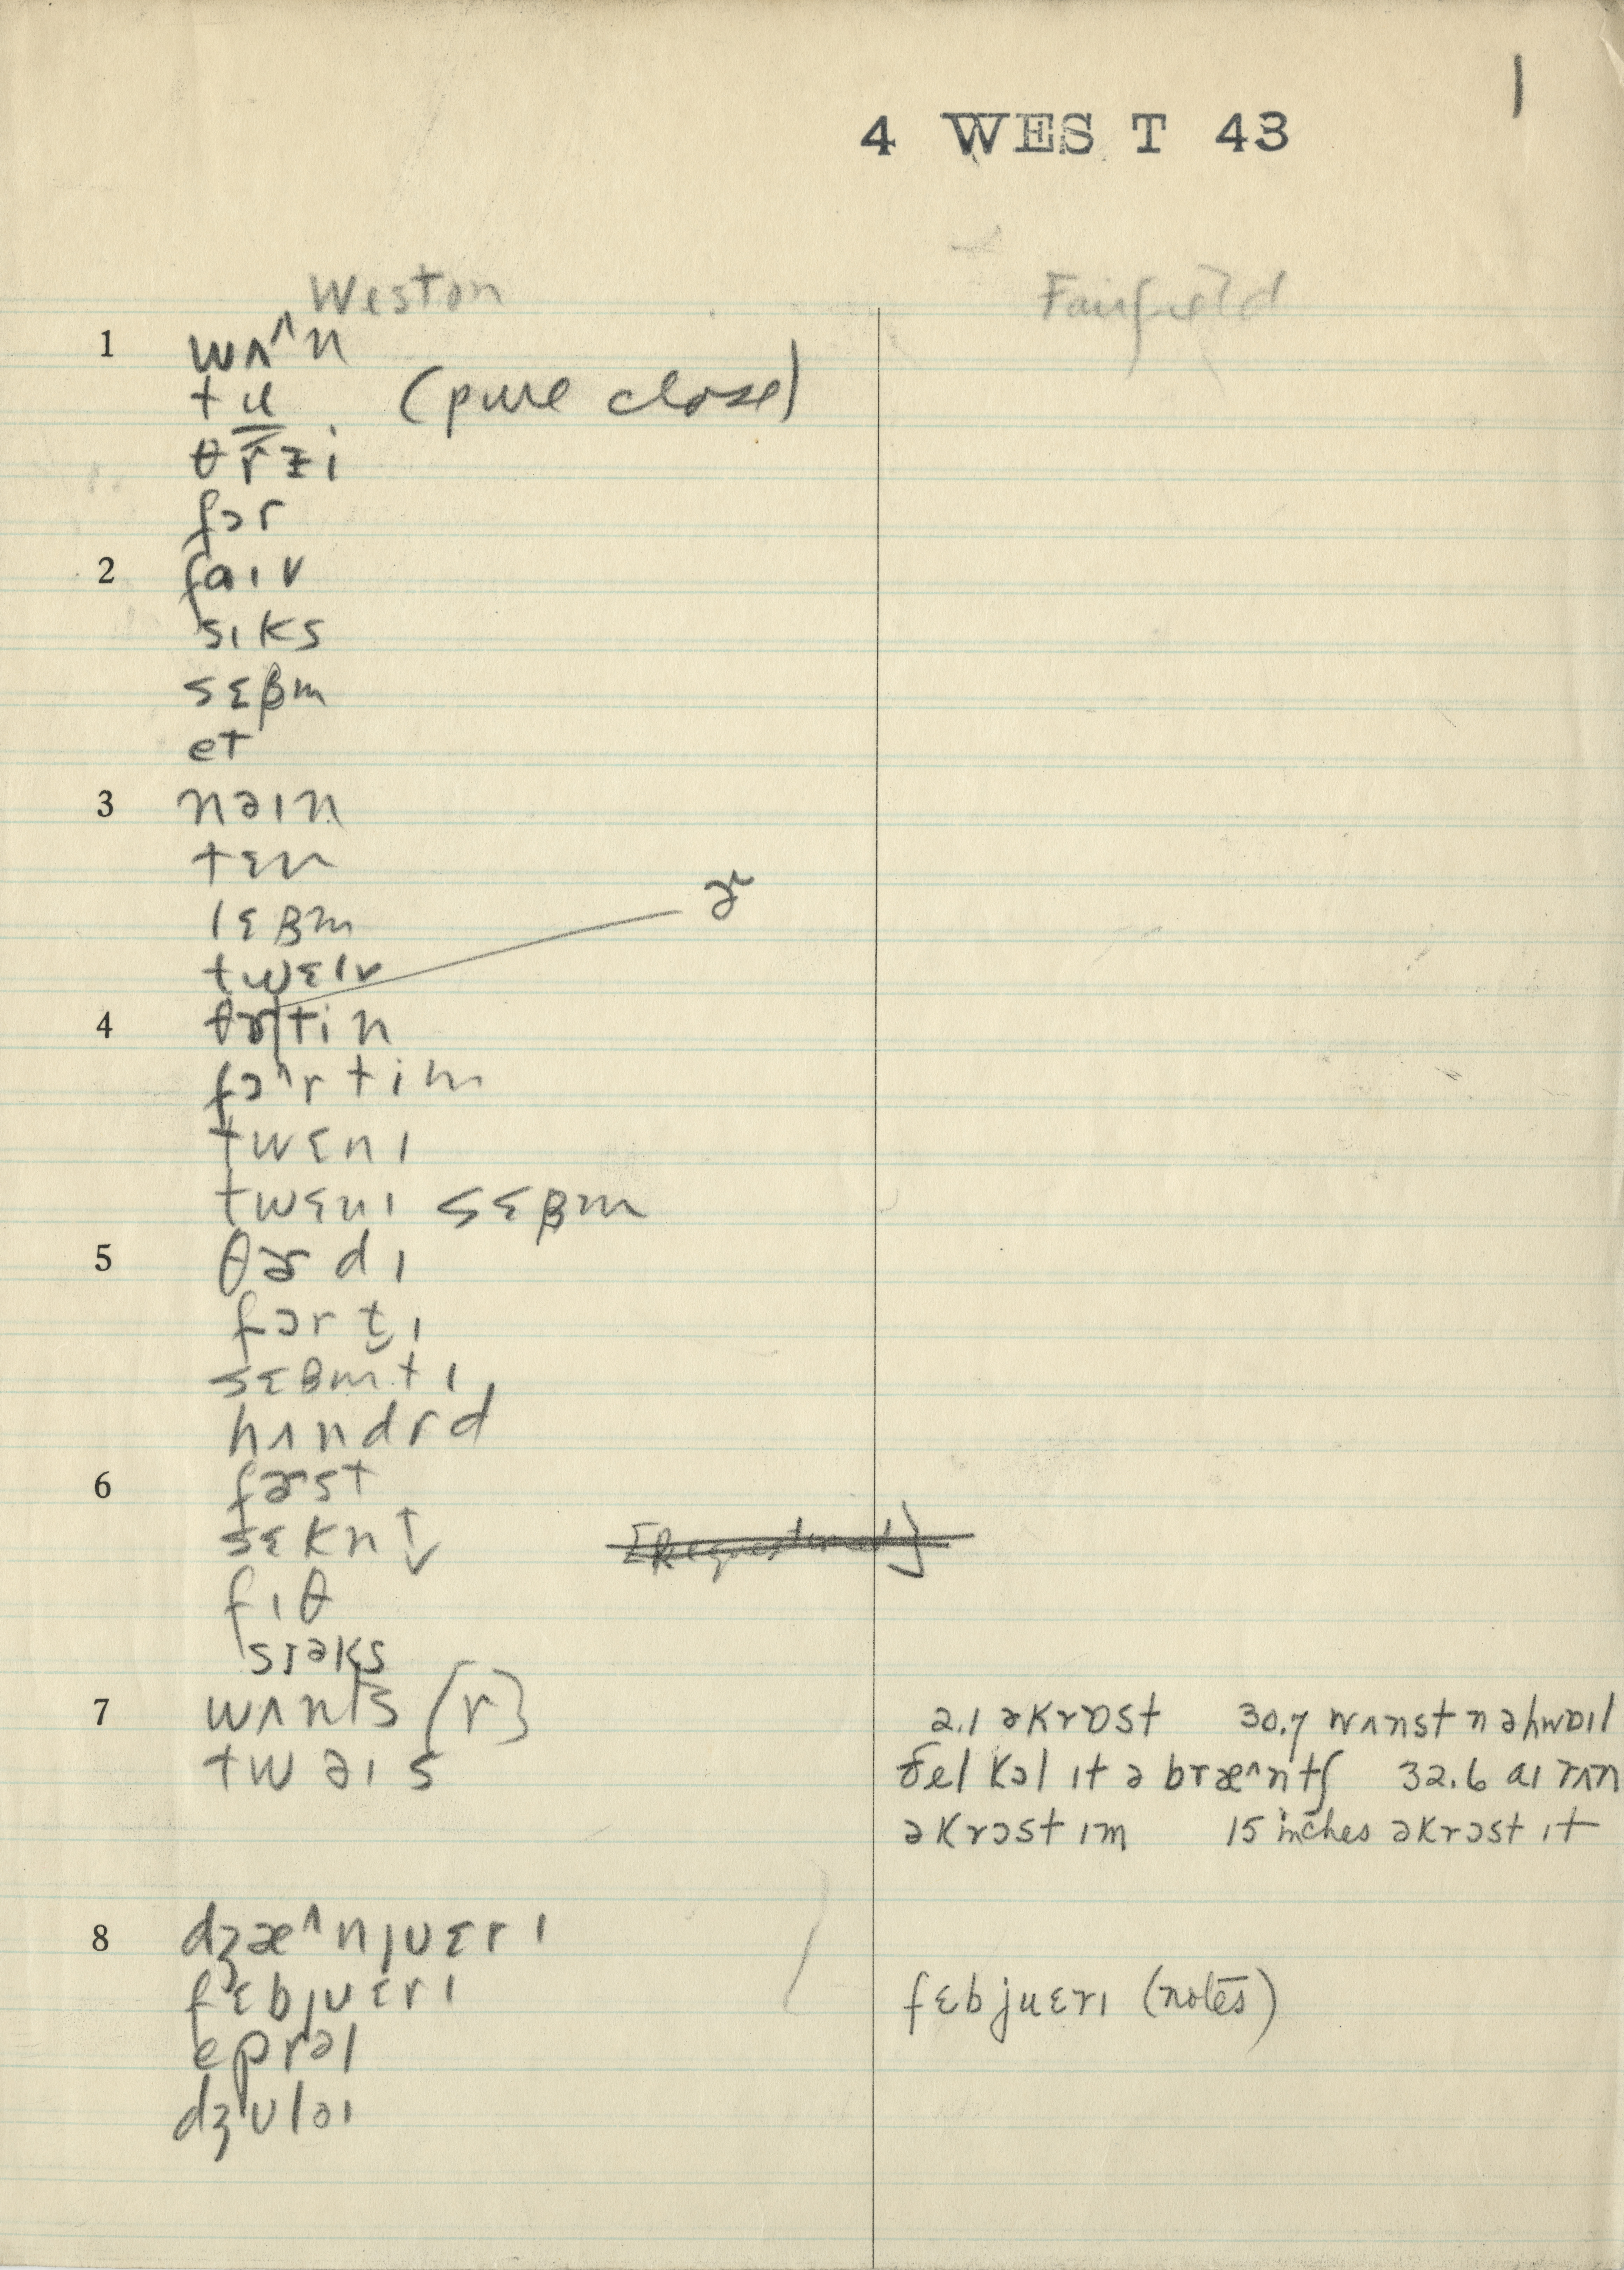 1
4 WEST 43
Weston Fairfield
1 wʌ^n
tu (pure close)
θrɨi
fɔr
2 faɪv
sɪks
sɛβm
et
3 nəɪn
tɛn
lɛβm
twɛlv
ɚ
4 θɚtin
fɔ^rtim
twɛnɪ
twɛnɪ sɛβm
5 θɚdɪ
fɔrt̬ɪ
sɛβmtɪ
hʌndrd
6 fɚst
sɛknt̬
fɪθ
sɪəks
7 wʌnts [r] 2.1 əkrɒst 30.7 wʌnst n əhwɒɪl
twəɪs ðel kɔl ɪt ə bræ^ntʃ 32.6 aɪ rʌn
əkrɔst ɪm 15 inches əkrɔst ɪt
8 dʒæ^njuɛrɪ
fɛbjuɛrɪ fɛbjuɛrɪ (notes)
eprəl
dʒuləɪ